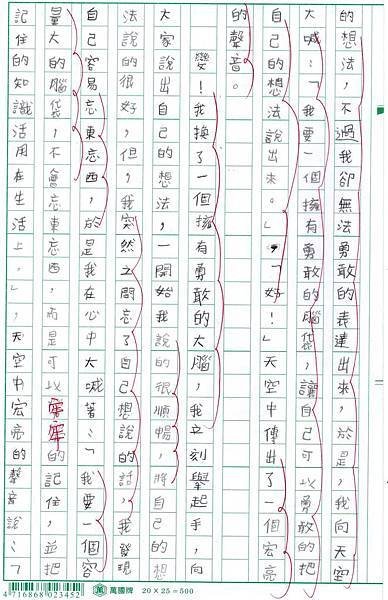 的想法，不過我卻無法勇敢的表達出來，於是，我向天空
大喊：「我要一個擁有勇敢的腦袋，讓自己可以勇敢的把
自己的想法說出來。」「好！」天空中傳出了一個宏亮
的聲音。
變！我換了一個擁有勇敢的大腦，我立刻舉起手，向
大家說出自己的想法，一開始我說的很順暢，將自己的想
法說的很好，但，我突然之間忘了自己想說的話，我發現
自己容易忘東忘西，於是我在心中大喊著：「我要一個容
量大的腦袋，不會忘東忘西，而是可以牢牢的記住，並把
記住的知識活用在生活上，」，天空中宏亮的聲音說：「
4 716868 023452 萬國牌 20 X 25 = 500